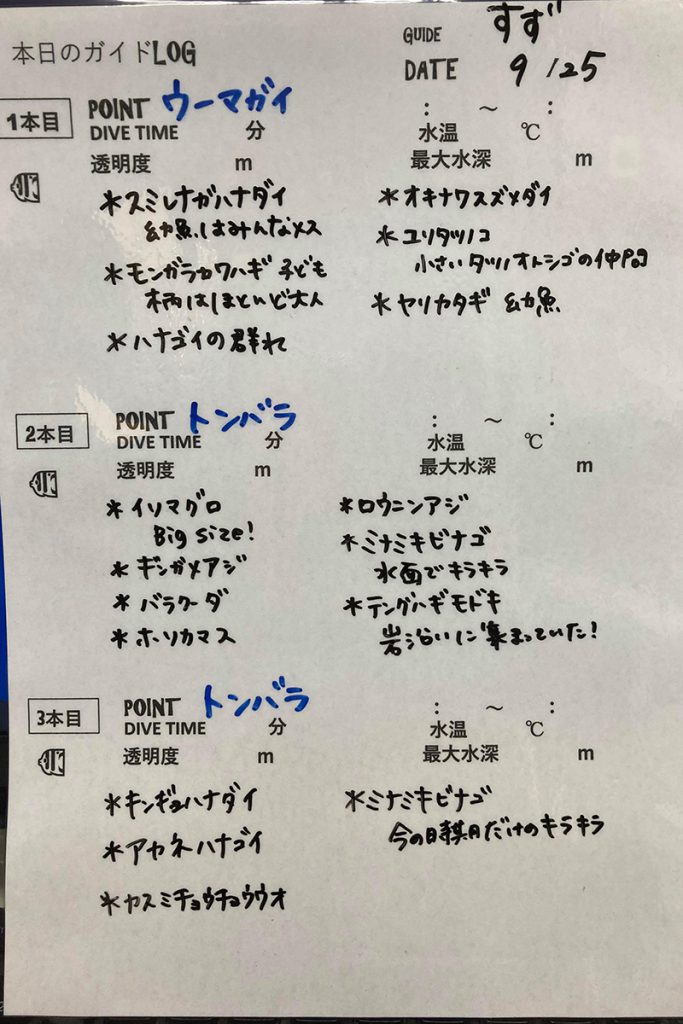 本日のガイドLOG
GUIDE すず
DATE 9/25
1本目
POINT ウーマガイ
: ～ :
DIVE TIME 分
水温 ℃
透明度 m
最大水深 m
*スミレナガハナダイ
幼魚はみんなメス
*モンガラカワハギ 子ども
柄はほとんど大人
*ハナゴイの群れ
*オキナワスズメダイ
*ユリタツノコ
小さいタツノオトシゴの仲間
*ヤリカタギ 幼魚
2本目
POINT トンバラ
: ～ :
DIVE TIME 分
水温 ℃
透明度 m
最大水深 m
*イソマグロ
Big size!
*ギンガメアジ
*バラクーダ
*ホソカマス
*ロウニンアジ
*ミナミキビナゴ
水面でキラキラ
*テングハギモドキ
岩沿いに集まっていた!
3本目
POINT トンバラ
: ～ :
DIVE TIME 分
水温 ℃
透明度 m
最大水深 m
*キンギョハナダイ
*アカネハナゴイ
*カスミチョウチョウウオ
*ミナミキビナゴ
今の時期だけのキラキラ